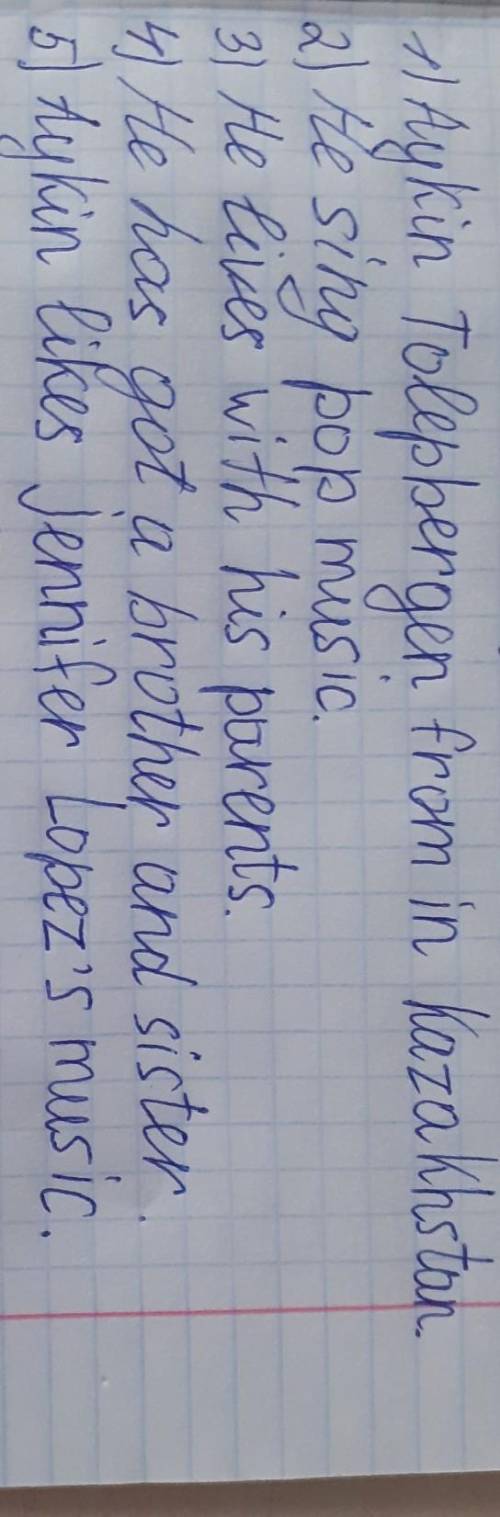 1) Aykin Tolepbergen from in Kazakhstan.
2) He sing pop music.
3) He lives with his parents.
4) He has got a brother and sister.
5) Aykin likes Jennifer Lopez's music.